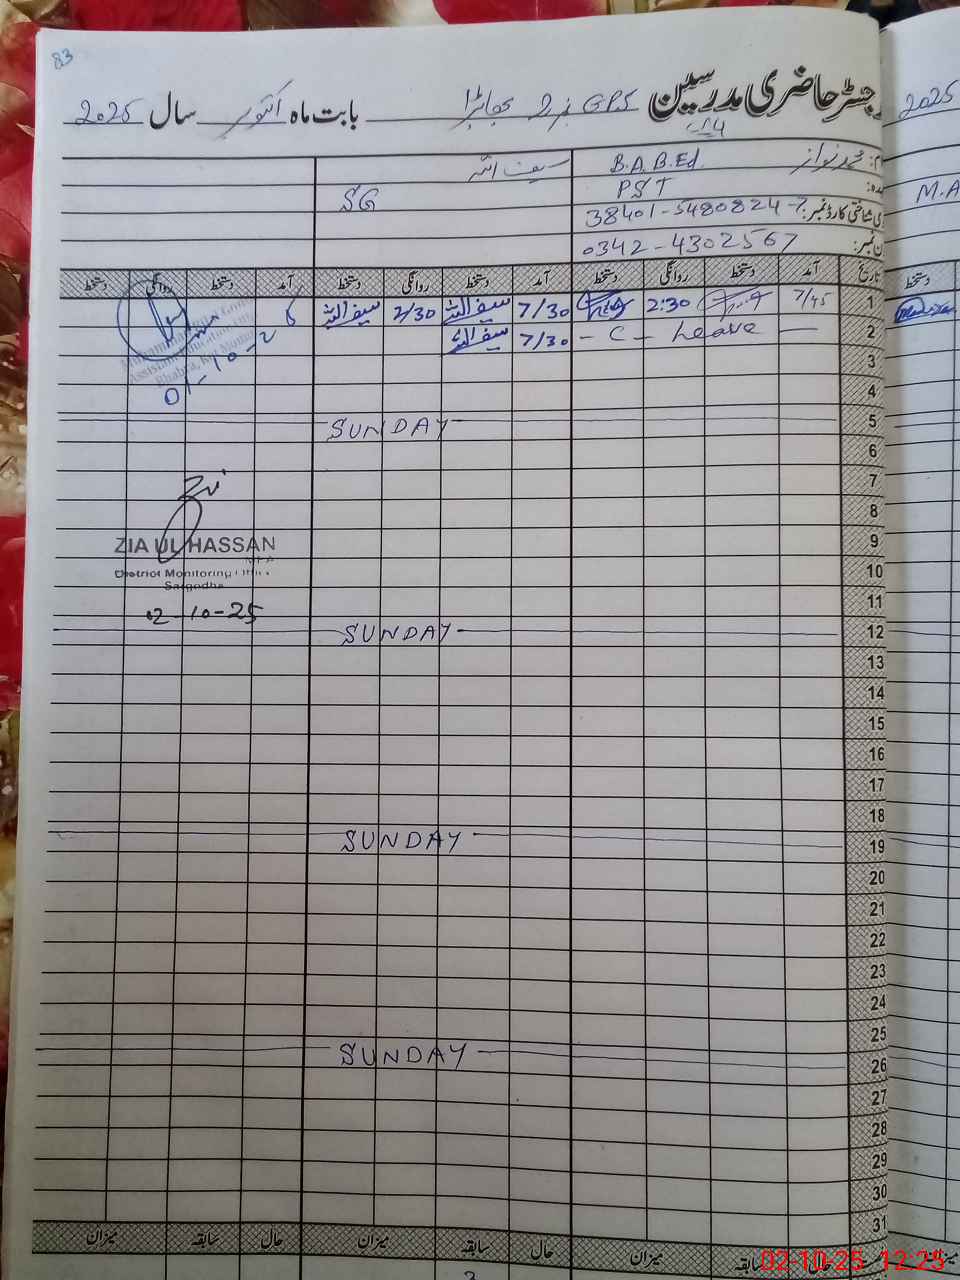 83
رجسٹر حاضری مدرسین GPS نمبر 2 بھابڑا بابت ماہ اکتوبر سال 2025
2025
محمد نواز B.A. B.Ed. سیف اللہ
PST SG
M.A
شناختی کارڈ نمبر: 38401-5480824-7
0342-4302567
تاریخ آمد دستخط روانگی دستخط آمد دستخط روانگی دستخط آمد دستخط روانگی دستخط
دستخط
1 7/45 2:30 7/30 سیف اللہ 2/30 سیف اللہ
2 — Leave — C — 7/30 سیف اللہ
01-10-2
3
4
5 SUNDAY
6
7
8
9
ZIA UL HASSAN
10
District Monitoring
Sargodha
11
02-10-25
12 SUNDAY
13
14
15
16
17
18
19 SUNDAY
20
21
22
23
24
25
26 SUNDAY
27
28
29
30
31
حال سابقہ میزان حال سابقہ میزان حال سابقہ میزان
میزان
02-10-25 12:25